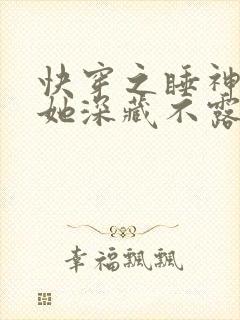 快穿之睡神
她深藏不露
幸福飘飘